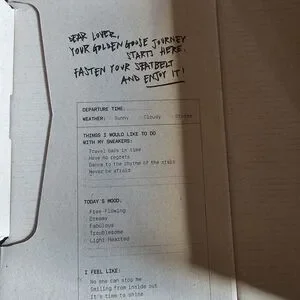 DEAR LOVER,
YOUR GOLDEN GOOSE JOURNEY
STARTS HERE.
FASTEN YOUR SEATBELT
AND ENJOY IT!
DEPARTURE TIME:
WEATHER: Sunny Cloudy
THINGS I WOULD LIKE TO DO
WITH MY SNEAKERS:
Travel back in time
Have no regrets
Dance to the rhythm of the stars
Never be afraid
TODAY'S MOOD:
Free-flowing
Dreamy
Fabulous
Troublesome
Light Hearted
I FEEL LIKE:
No one can stop me
Smiling from inside out
It's time to shine